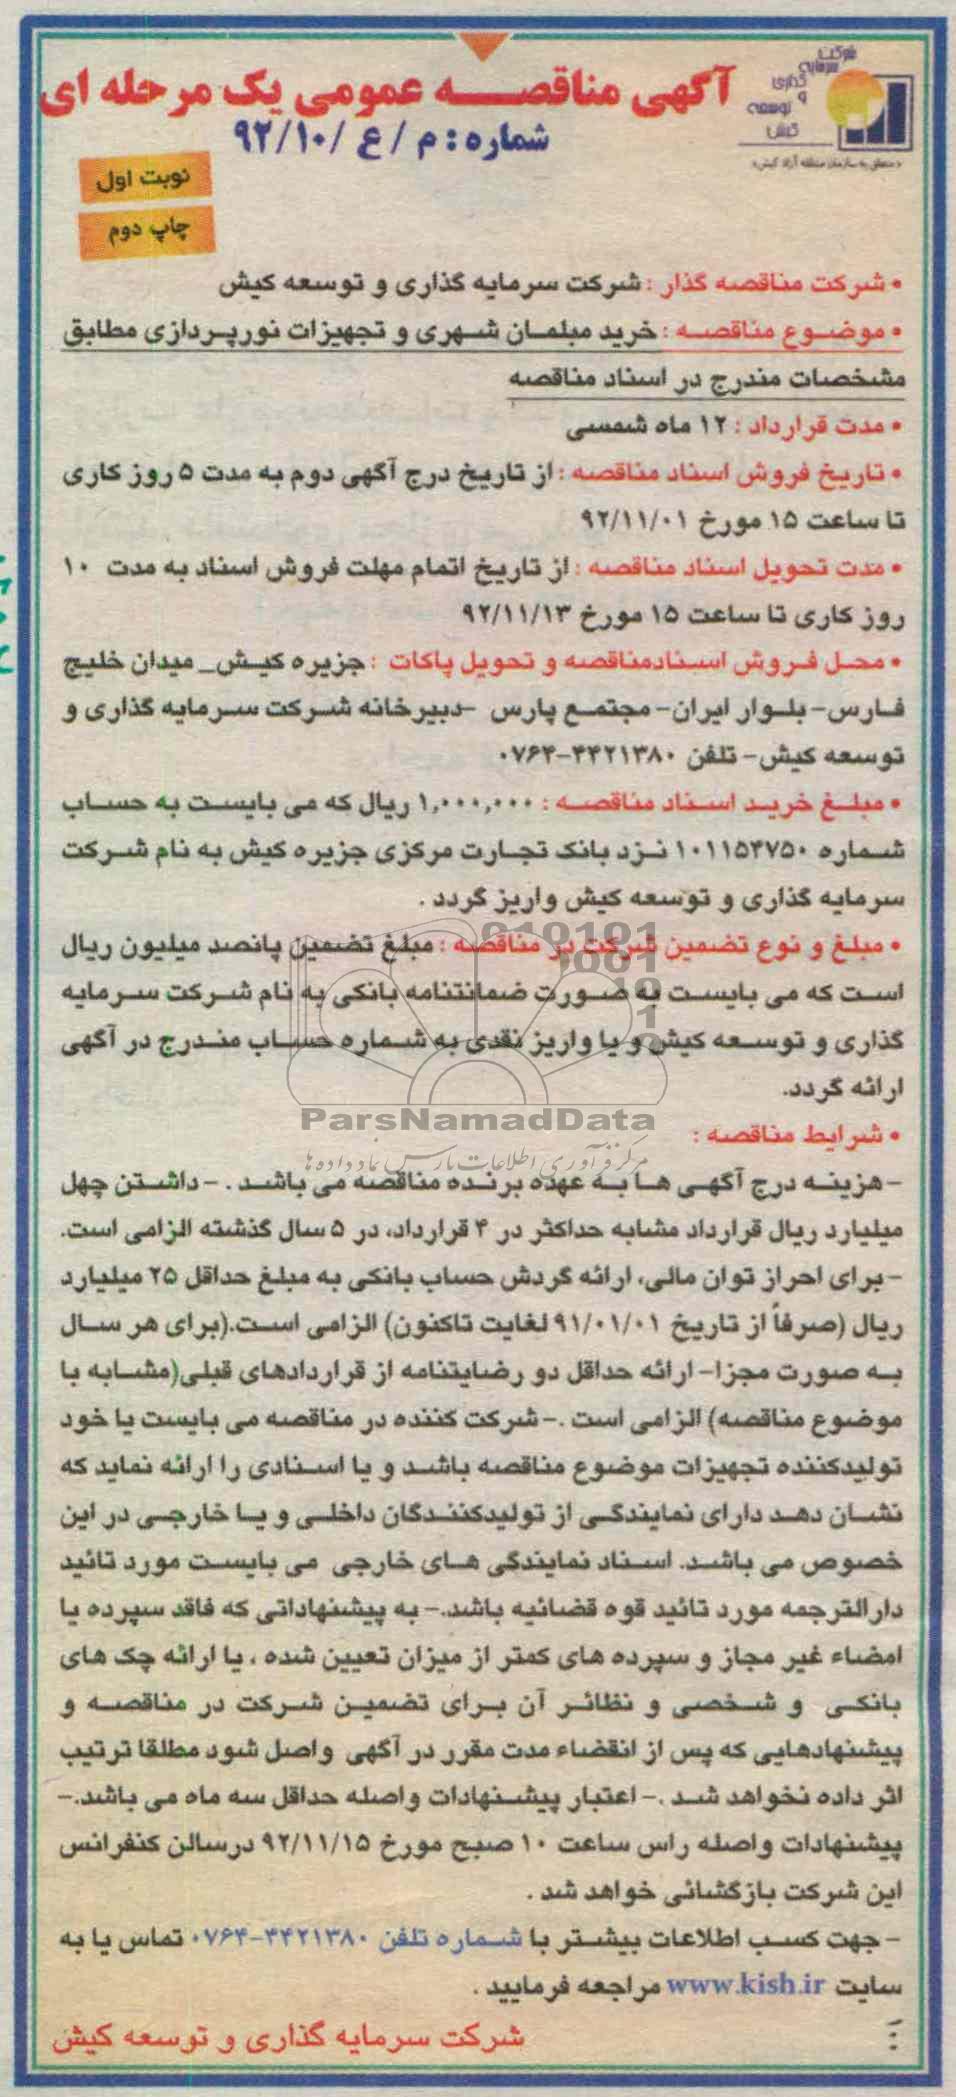 شرکت
سرمایه
گذاری
و
توسعه
کیش
«متعلق به سازمان منطقه آزاد کیش»
آگهی مناقصه عمومی یک مرحله ای
شماره: م / ع /۹۲/۱۰
نوبت اول
چاپ دوم
• شرکت مناقصه گذار : شرکت سرمایه گذاری و توسعه کیش
• موضوع مناقصه : خرید مبلمان شهری و تجهیزات نورپردازی مطابق
مشخصات مندرج در اسناد مناقصه
• مدت قرارداد : ۱۲ ماه شمسی
• تاریخ فروش اسناد مناقصه : از تاریخ درج آگهی دوم به مدت ۵ روز کاری
تا ساعت ۱۵ مورخ ۹۲/۱۱/۰۱
• مدت تحویل اسناد مناقصه : از تاریخ اتمام مهلت فروش اسناد به مدت ۱۰
روز کاری تا ساعت ۱۵ مورخ ۹۲/۱۱/۱۳
• محل فروش اسنادمناقصه و تحویل پاکات : جزیره کیش_ میدان خلیج
فارس- بلوار ایران- مجتمع پارس -دبیرخانه شرکت سرمایه گذاری و
توسعه کیش- تلفن ۴۴۲۱۳۸۰-۰۷۶۴
• مبلغ خرید اسناد مناقصه : ۱,۰۰۰,۰۰۰ ریال که می بایست به حساب
شماره ۱۰۱۱۵۴۷۵۰ نزد بانک تجارت مرکزی جزیره کیش به نام شرکت
سرمایه گذاری و توسعه کیش واریز گردد .
• مبلغ و نوع تضمین شرکت در مناقصه : مبلغ تضمین پانصد میلیون ریال
است که می بایست به صورت ضمانتنامه بانکی به نام شرکت سرمایه
گذاری و توسعه کیش و یا واریز نقدی به شماره حساب مندرج در آگهی
ارائه گردد.
ParsNamadData
مرکز فرآوری اطلاعات پارس نماد داده ها
• شرایط مناقصه :
- هزینه درج آگهی ها به عهده برنده مناقصه می باشد . - داشتن چهل
میلیارد ریال قرارداد مشابه حداکثر در ۴ قرارداد، در ۵ سال گذشته الزامی است.
- برای احراز توان مالی، ارائه گردش حساب بانکی به مبلغ حداقل ۲۵ میلیارد
ریال (صرفاً از تاریخ ۹۱/۰۱/۰۱ لغایت تاکنون) الزامی است.(برای هر سال
به صورت مجزا- ارائه حداقل دو رضایتنامه از قراردادهای قبلی(مشابه با
موضوع مناقصه) الزامی است .- شرکت کننده در مناقصه می بایست یا خود
تولیدکننده تجهیزات موضوع مناقصه باشد و یا اسنادی را ارائه نماید که
نشان دهد دارای نمایندگی از تولیدکنندگان داخلی و یا خارجی در این
خصوص می باشد. اسناد نمایندگی های خارجی می بایست مورد تائید
دارالترجمه مورد تائید قوه قضائیه باشد.- به پیشنهاداتی که فاقد سپرده یا
امضاء غیر مجاز و سپرده های کمتر از میزان تعیین شده ، یا ارائه چک های
بانکی و شخصی و نظائر آن برای تضمین شرکت در مناقصه و
پیشنهادهایی که پس از انقضاء مدت مقرر در آگهی واصل شود مطلقا ترتیب
اثر داده نخواهد شد .- اعتبار پیشنهادات واصله حداقل سه ماه می باشد.-
پیشنهادات واصله راس ساعت ۱۰ صبح مورخ ۹۲/۱۱/۱۵ درسالن کنفرانس
این شرکت بازگشائی خواهد شد .
- جهت کسب اطلاعات بیشتر با شماره تلفن ۴۴۲۱۳۸۰-۰۷۶۴ تماس یا به
سایت www.kish.ir مراجعه فرمایید .
شرکت سرمایه گذاری و توسعه کیش